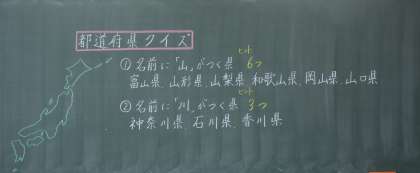 都道府県クイズ
ヒント
①名前に「山」がつく県 6つ
富山県、山形県、山梨県、和歌山県、岡山県、山口県
ヒント
②名前に「川」がつく県 3つ
神奈川県、石川県、香川県